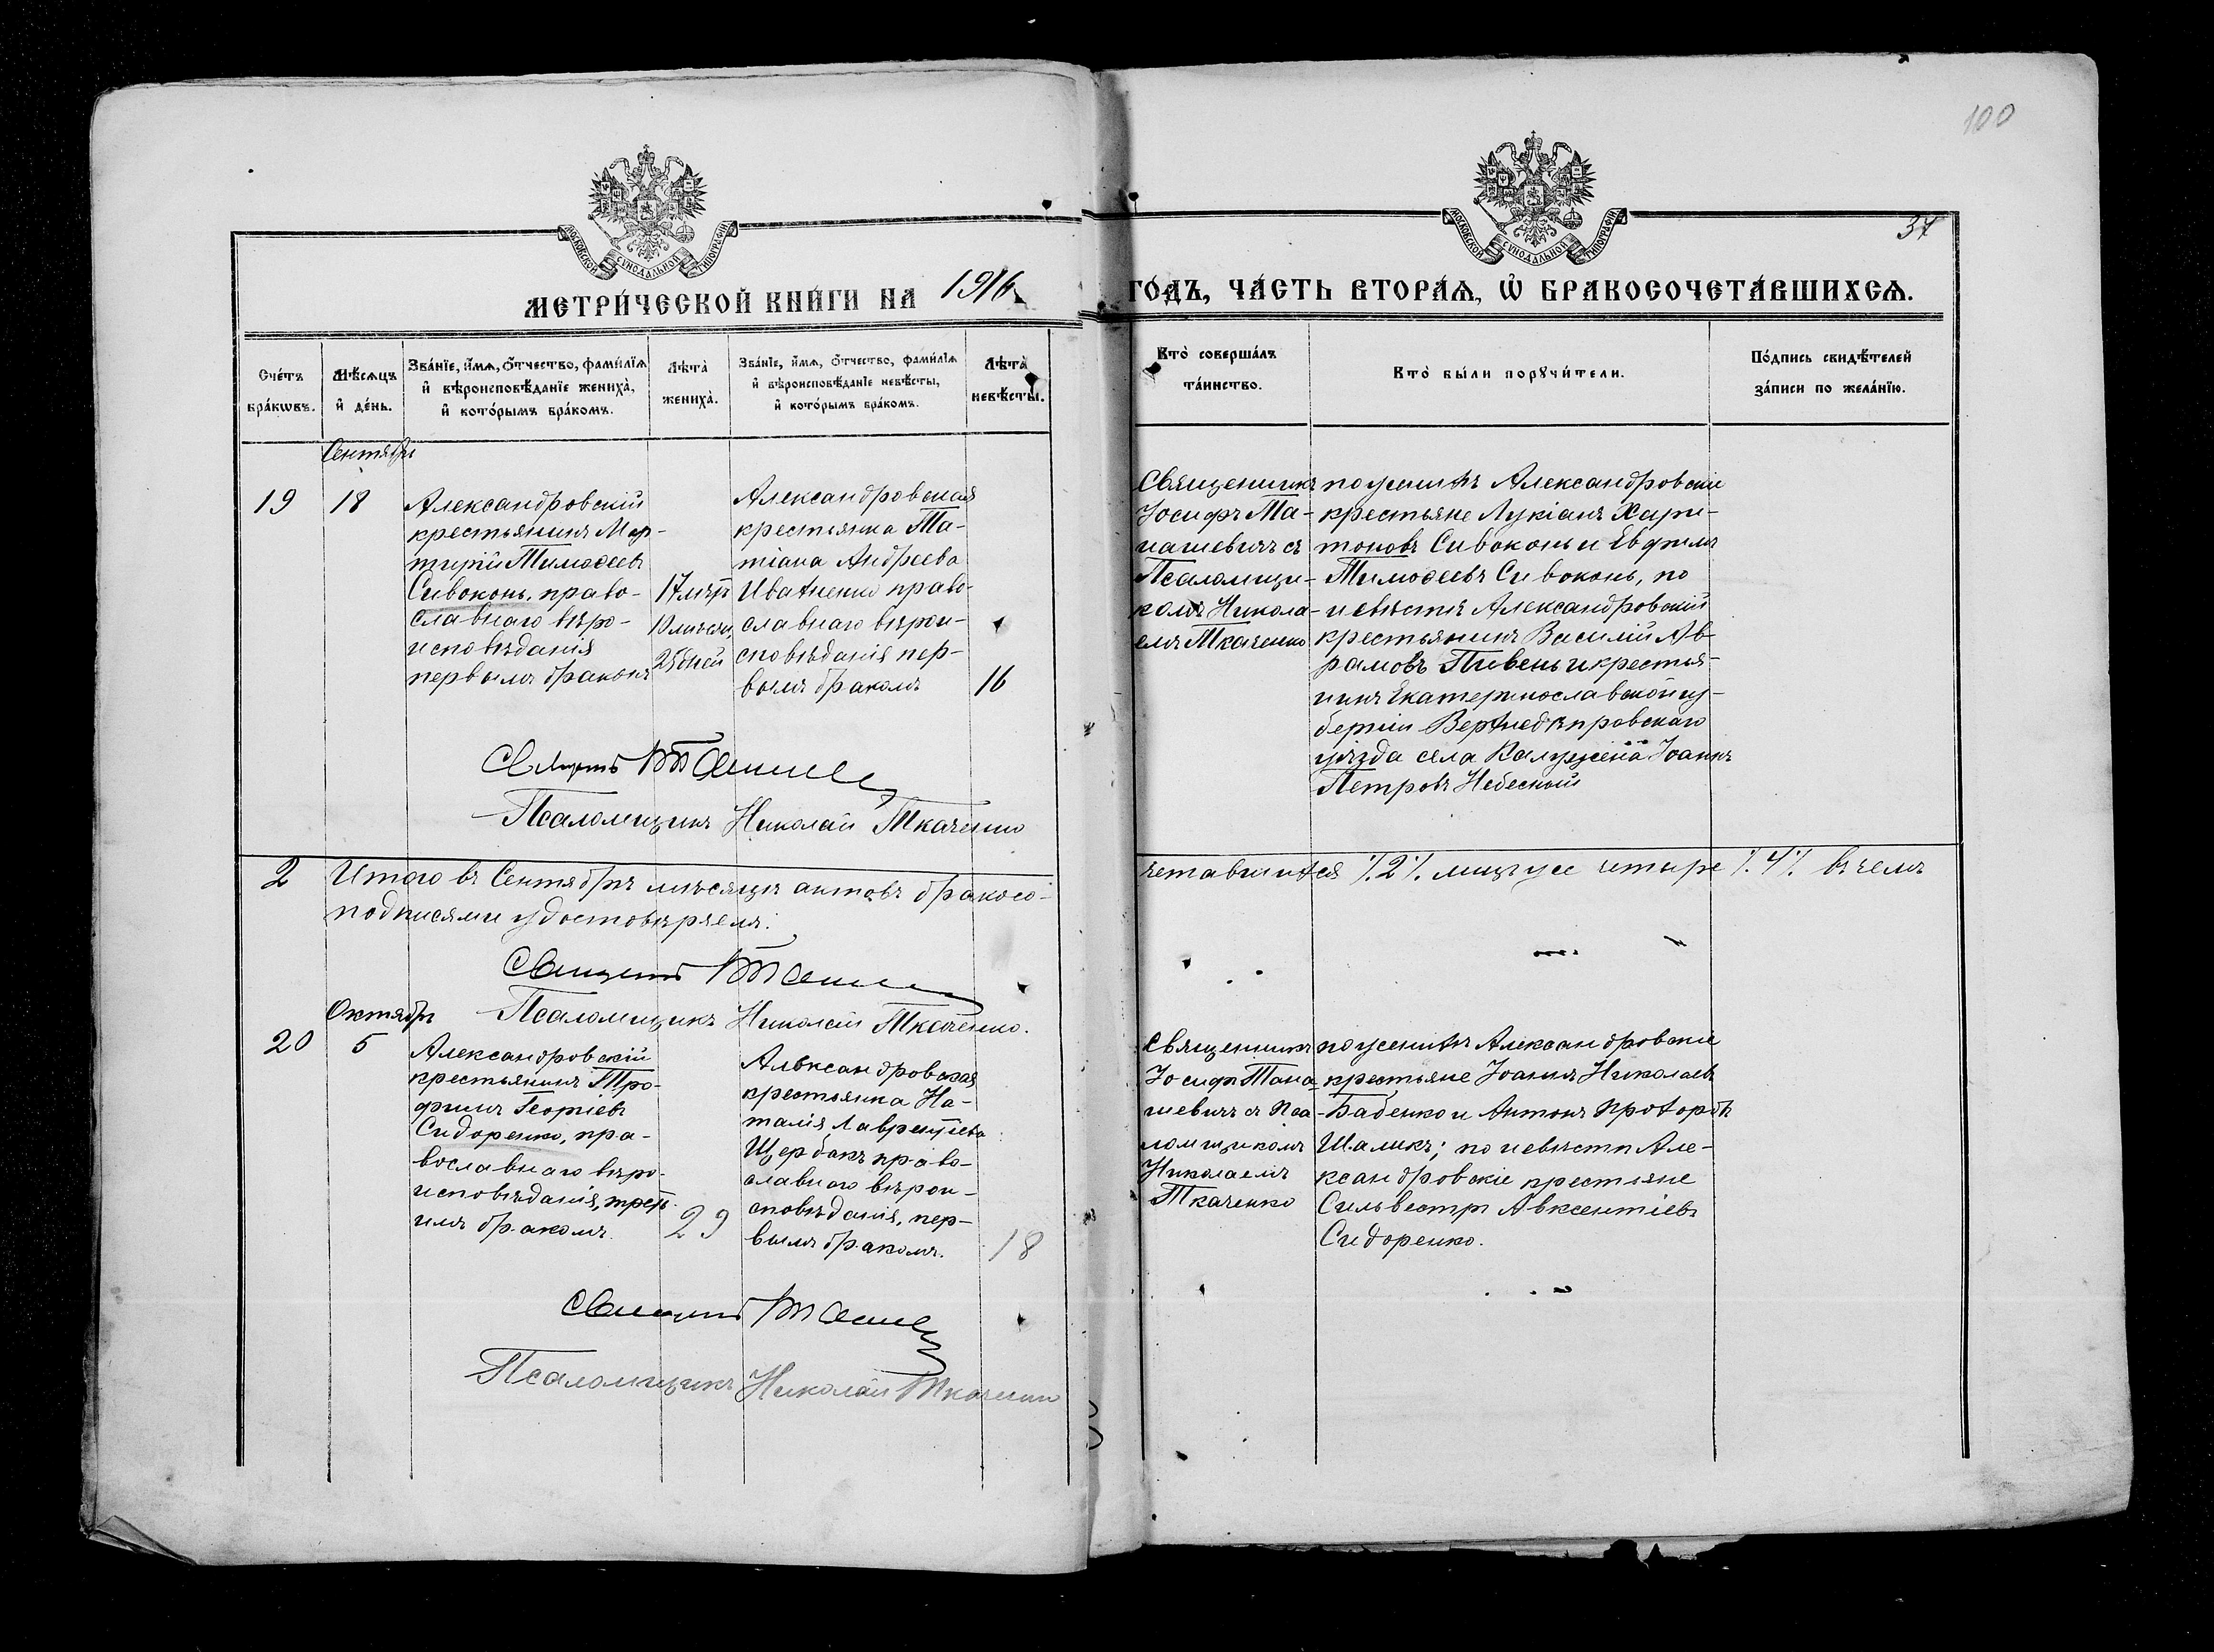 100
МОСКОВСКОЙ СѴНОДАЛЬНОЙ ТИПОГРАФІИ
МОСКОВСКОЙ СѴНОДАЛЬНОЙ ТИПОГРАФІИ
37
МЕТРИ́ЧЕСКОЙ КНИ́ГИ НА 1916
ГО́ДЪ, ЧА́СТЬ ВТОРА́Ѧ, Ѡ҆ БРАКОСОЧЕТА́ВШИХСѦ.
Сче́тъ
бра́кѡвъ.
Мѣ́сѧцъ
и҆ де́нь.
Зва́нїе, и҆́мѧ, ѻ҆́тчество, фами́лїѧ
и҆ вѣроисповѣ́данїе жениха̀,
и҆ кото́рымъ бра́комъ.
Лѣ́та
жениха̀.
Зва́нїе, и҆́мѧ, ѻ҆́тчество, фами́лїѧ
и҆ вѣроисповѣ́данїе невѣ́сты,
и҆ кото́рымъ бра́комъ.
Лѣ́та
невѣ́сты.
Кто̀ соверша́лъ
та́инство.
Кто̀ бы́ли порꙋчи́тели.
По́дпись свидѣ́телей
за́писи по жела́нїю.
Сентябрь
19
18
Александровскій
крестьянинъ Мар-
тирій Тимоѳеевъ
Сивоконь, право-
славнаго вѣро-
исповѣданія
первымъ бракомъ
17 лѣтъ
10 мѣсяц.
25 дней
Александровская
крестьянка Та-
тіана Андреева
Ивахненко право-
славнаго вѣрои-
сповѣданія пер-
вымъ бракомъ
16
Священникъ
Іосифъ Та-
нашевичъ съ
Псаломщи-
комъ Никола-
емъ Ткаченко
по женихѣ Александровскіе
крестьяне Лукіанъ Хари-
тоновъ Сивоконь и Евфимъ
Тимоѳеевъ Сивоконь, по
невѣстѣ Александровскій
крестьянинъ Василій Ав-
рамовъ Пивень и крестья-
нинъ Екатеринославской гу-
берніи Верхнеднѣпровскаго
уѣзда села Калужена Іоаннъ
Петровъ Небесный
Псаломщикъ Николай Ткаченко
2
Итого въ Сентябрѣ мѣсяцѣ актовъ бракосо-
четавшихся ٪2٪ мужескаго четыре ٪4٪ въ чемъ
подписями удостовѣряемъ:
Псаломщикъ Николай Ткаченко.
Октябрь
20
5
Александровскій
крестьянинъ Тро-
фимъ Георгіевъ
Сидоренко, пра-
вославнаго вѣро-
исповѣданія, треть-
имъ бракомъ.
29
Александровская
крестьянка На-
талія Лаврентіева
Щербакъ право-
славнаго вѣрои-
сповѣданія, пер-
вымъ бракомъ.
18
Священникъ
Іосифъ Тана-
шевичъ съ Пса-
ломщикомъ
Николаемъ
Ткаченко
по женихѣ Александровскіе
крестьяне Іоаннъ Николаевъ
Бабенко и Антонъ Прохоровъ
Шаликъ; по невѣстѣ Але-
ксандровскіе крестьяне
Сильвестръ Авксентіевъ
Сидоренко.
Псаломщикъ Николай Ткаченко